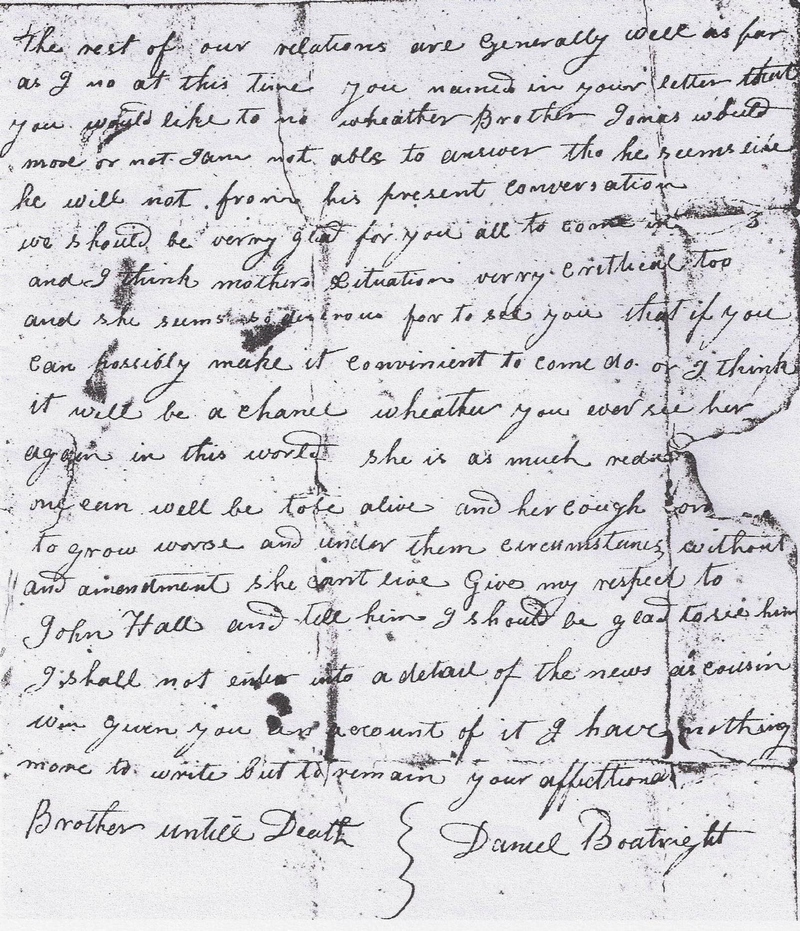 The rest of our relations are Generally well as far
as I no at this time you named in your letter that
you would like to no wheather Brother Jonas would
move or not I am not able to answer tho he seems like
he will not from his present conversation
we should be verry glad for you all to come in 3
and I think mothers Situation verry Crittical too
and she sums so desirous for to see you that if you
can possibly make it convinient to come do or I think
it will be a chance wheather you ever see her
again in this world she is as much
one can well be to be alive and her cough
to grow worse and under them circumstances without
and amendment she cant live Give my respect to
John Hall and tell him I should be glad to see him
I shall not enter into a detail of the news as cousin
given you an account of it I have nothing
more to write but to remain your affectionate
Brother untill Death Daniel Boatright